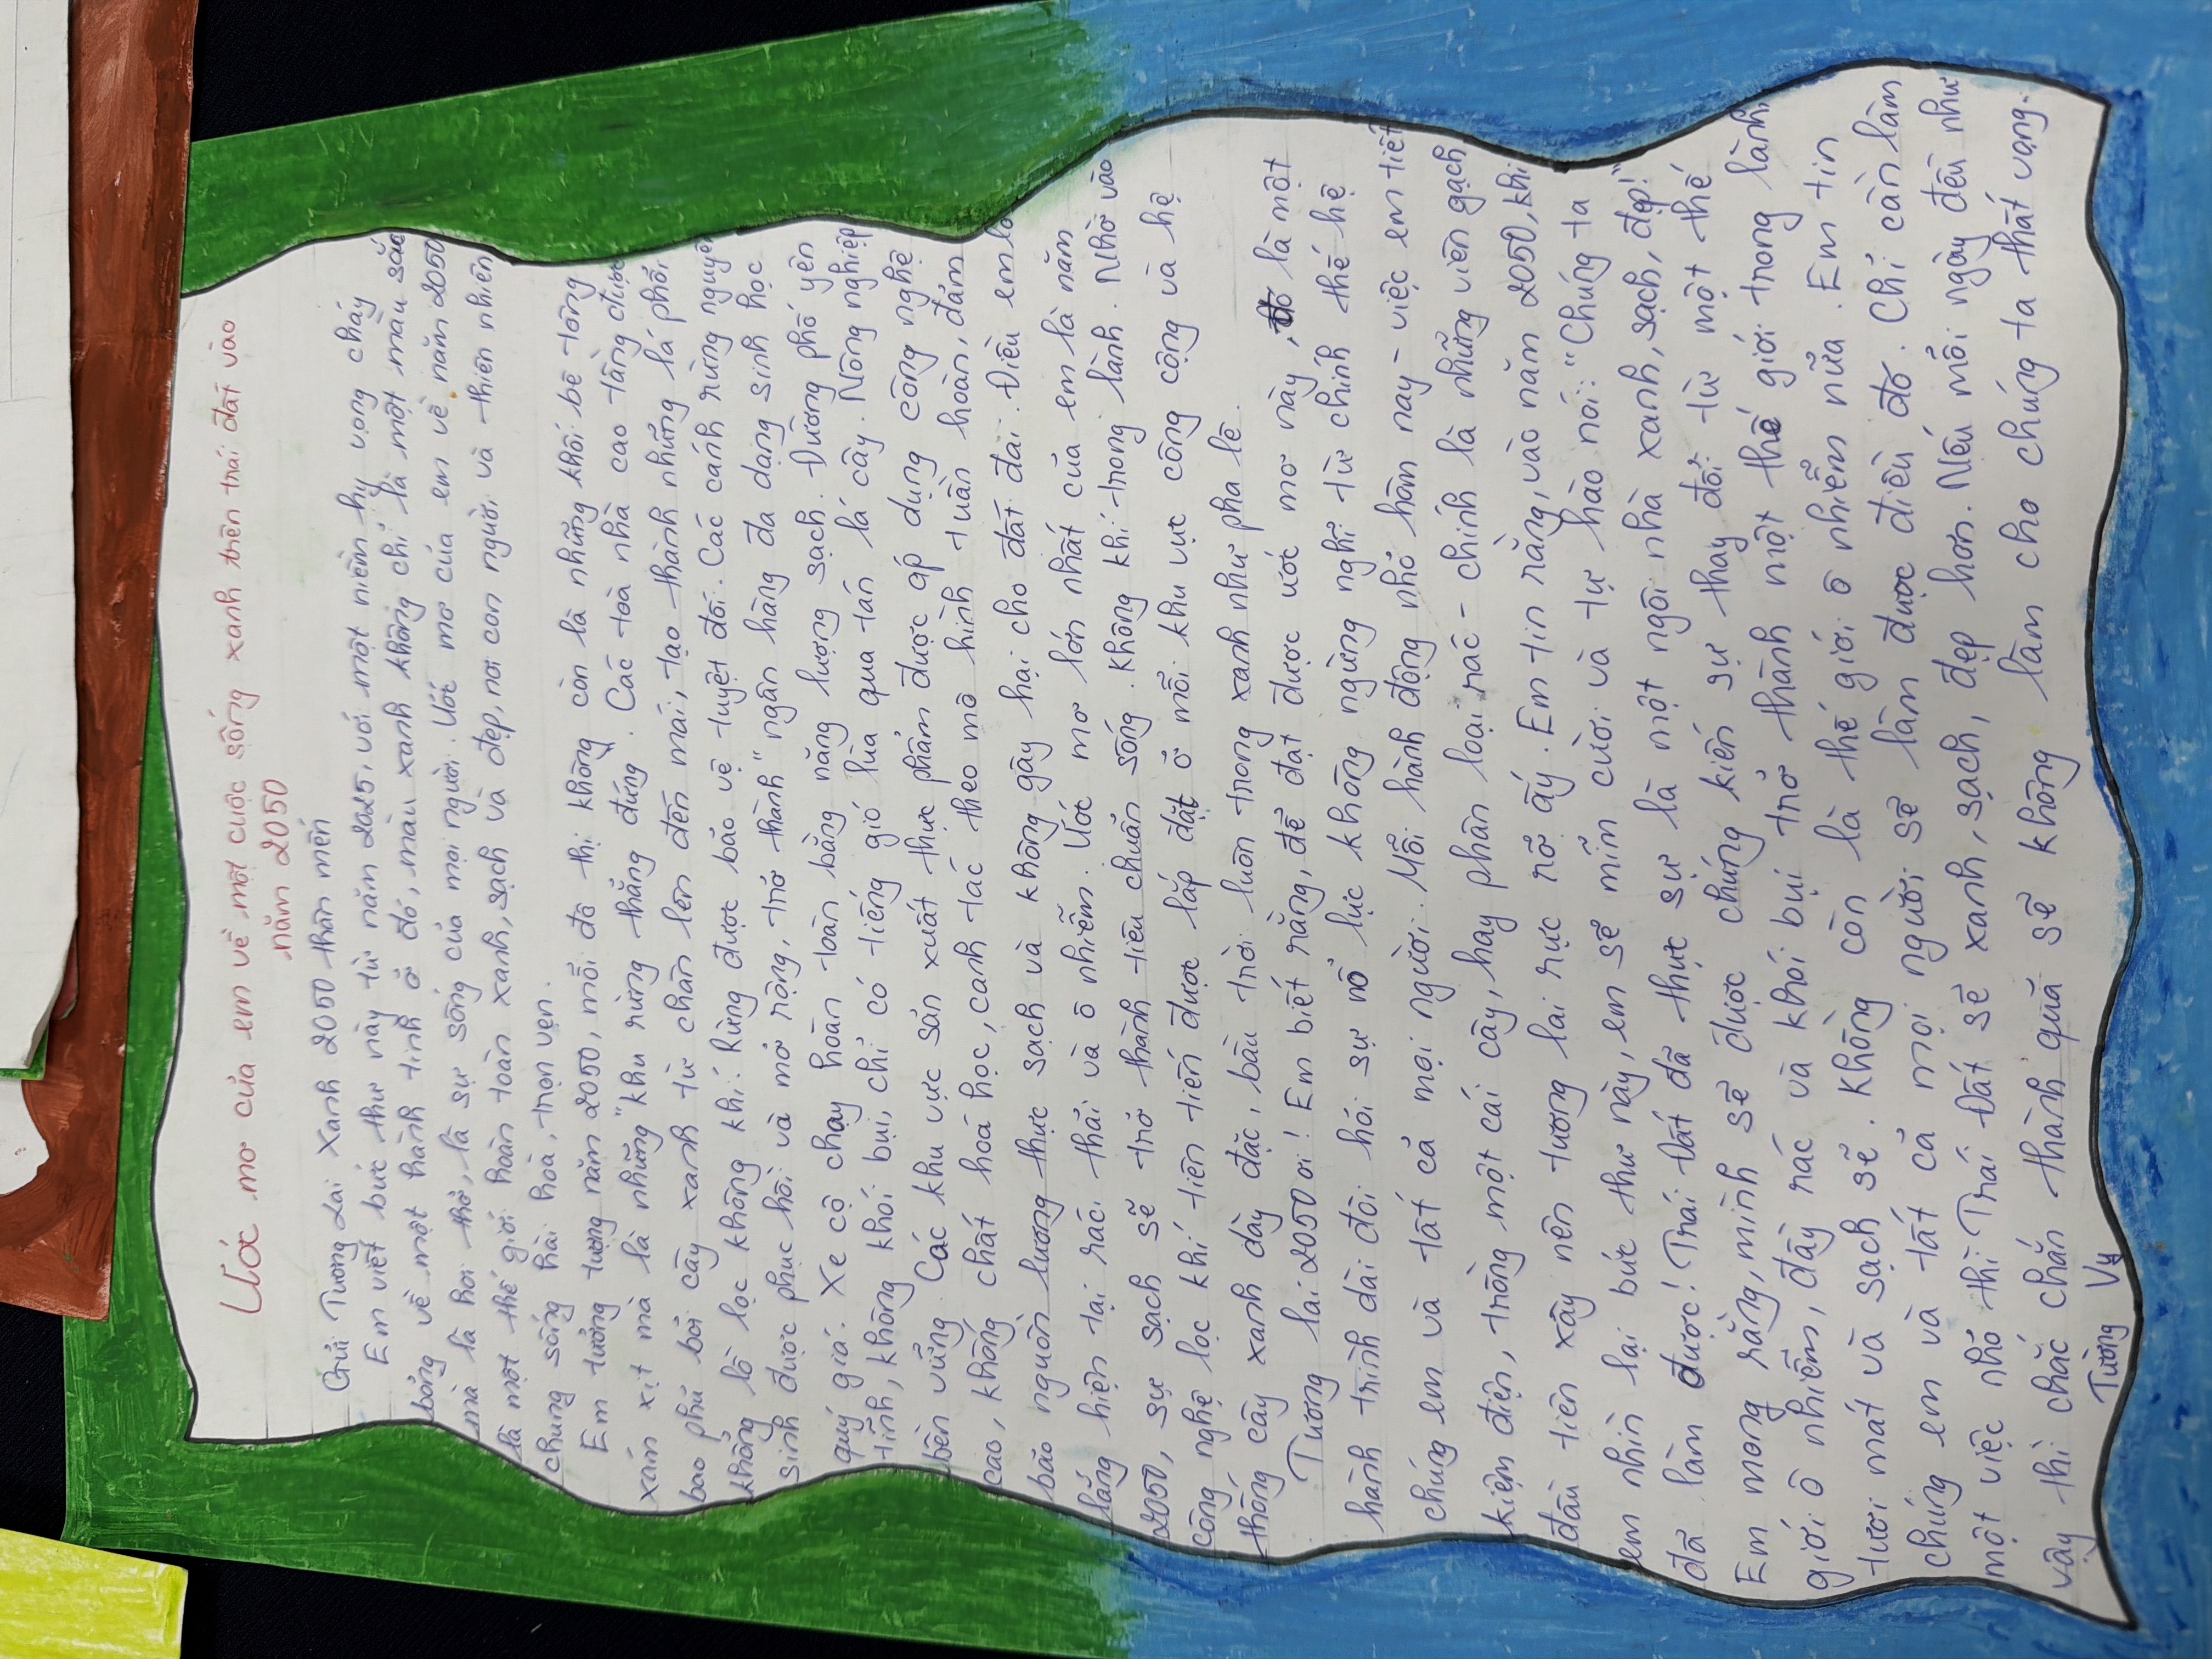 Ước mơ của em về một cuộc sống xanh trên trái đất vào
năm 2050
Gửi Tương Lai Xanh 2050 thân mến
Em viết bức thư này từ năm 2025, với một niềm hy vọng cháy
bỏng về một hành tinh ở đó, màu xanh không chỉ là một màu sắc
mà là hơi thở, là sự sống của mọi người. Ước mơ của em về năm 2050
là một thế giới hoàn toàn xanh, sạch và đẹp, nơi con người và thiên nhiên
chung sống hài hoà, trọn vẹn.
Em tưởng tượng năm 2050, mỗi đô thị không còn là những khối bê tông
xám xịt mà là những "khu rừng thẳng đứng. Các toà nhà cao tầng được
bao phủ bởi cây xanh từ chân lên đến mái, tạo thành những lá phổi
khổng lồ lọc không khí. Rừng được bảo vệ tuyệt đối. Các cánh rừng nguyên
sinh được phục hồi và mở rộng, trở thành "ngân hàng đa dạng sinh học
quý giá. Xe cộ chạy hoàn toàn bằng năng lượng sạch. Đường phố yên
tĩnh, không khói bụi, chỉ có tiếng gió lùa qua tán lá cây. Nông nghiệp
bền vững. Các khu vực sản xuất thực phẩm được áp dụng công nghệ
cao, không chất hoá học, canh tác theo mô hình tuần hoàn, đảm
bảo nguồn lương thực sạch và không gây hại cho đất đai. Điều em lo
lắng hiện tại rác thải và ô nhiễm. Ước mơ lớn nhất của em là năm
2050, sự sạch sẽ trở thành tiêu chuẩn sống. Không khí trong lành. Nhờ vào
công nghệ lọc khí tiên tiến được lắp đặt ở mỗi khu vực công cộng và hệ
thống cây xanh dày đặc, bầu trời luôn trong xanh như pha lê.
Tương lai 2050 ơi! Em biết rằng, để đạt được ước mơ này, đó là một
hành trình dài đòi hỏi sự nỗ lực không ngừng nghỉ từ chính thế hệ
chúng em và tất cả mọi người. Mỗi hành động nhỏ hôm nay - việc em tiết
kiệm điện, trồng một cái cây, hay phân loại rác - chính là những viên gạch
đầu tiên xây nên tương lai rực rỡ ấy. Em tin rằng, vào năm 2050, khi
em nhìn lại bức thư này, em sẽ mỉm cười và tự hào nói: "Chúng ta
đã làm được! Trái Đất đã thực sự là một ngôi nhà xanh, sạch, đẹp!"
Em mong rằng, mình sẽ được chứng kiến sự thay đổi từ một thế
giới ô nhiễm, đầy rác và khói bụi trở thành một thế giới trong lành,
tươi mát và sạch sẽ. Không còn là thế giới ô nhiễm nữa. Em tin
chúng em và tất cả mọi người sẽ làm được điều đó. Chỉ cần làm
một việc nhỏ thì Trái Đất sẽ xanh, sạch, đẹp hơn. Nếu mỗi ngày đều như
vậy thì chắc chắn thành quả sẽ không làm cho chúng ta thất vọng.
Tường Vy